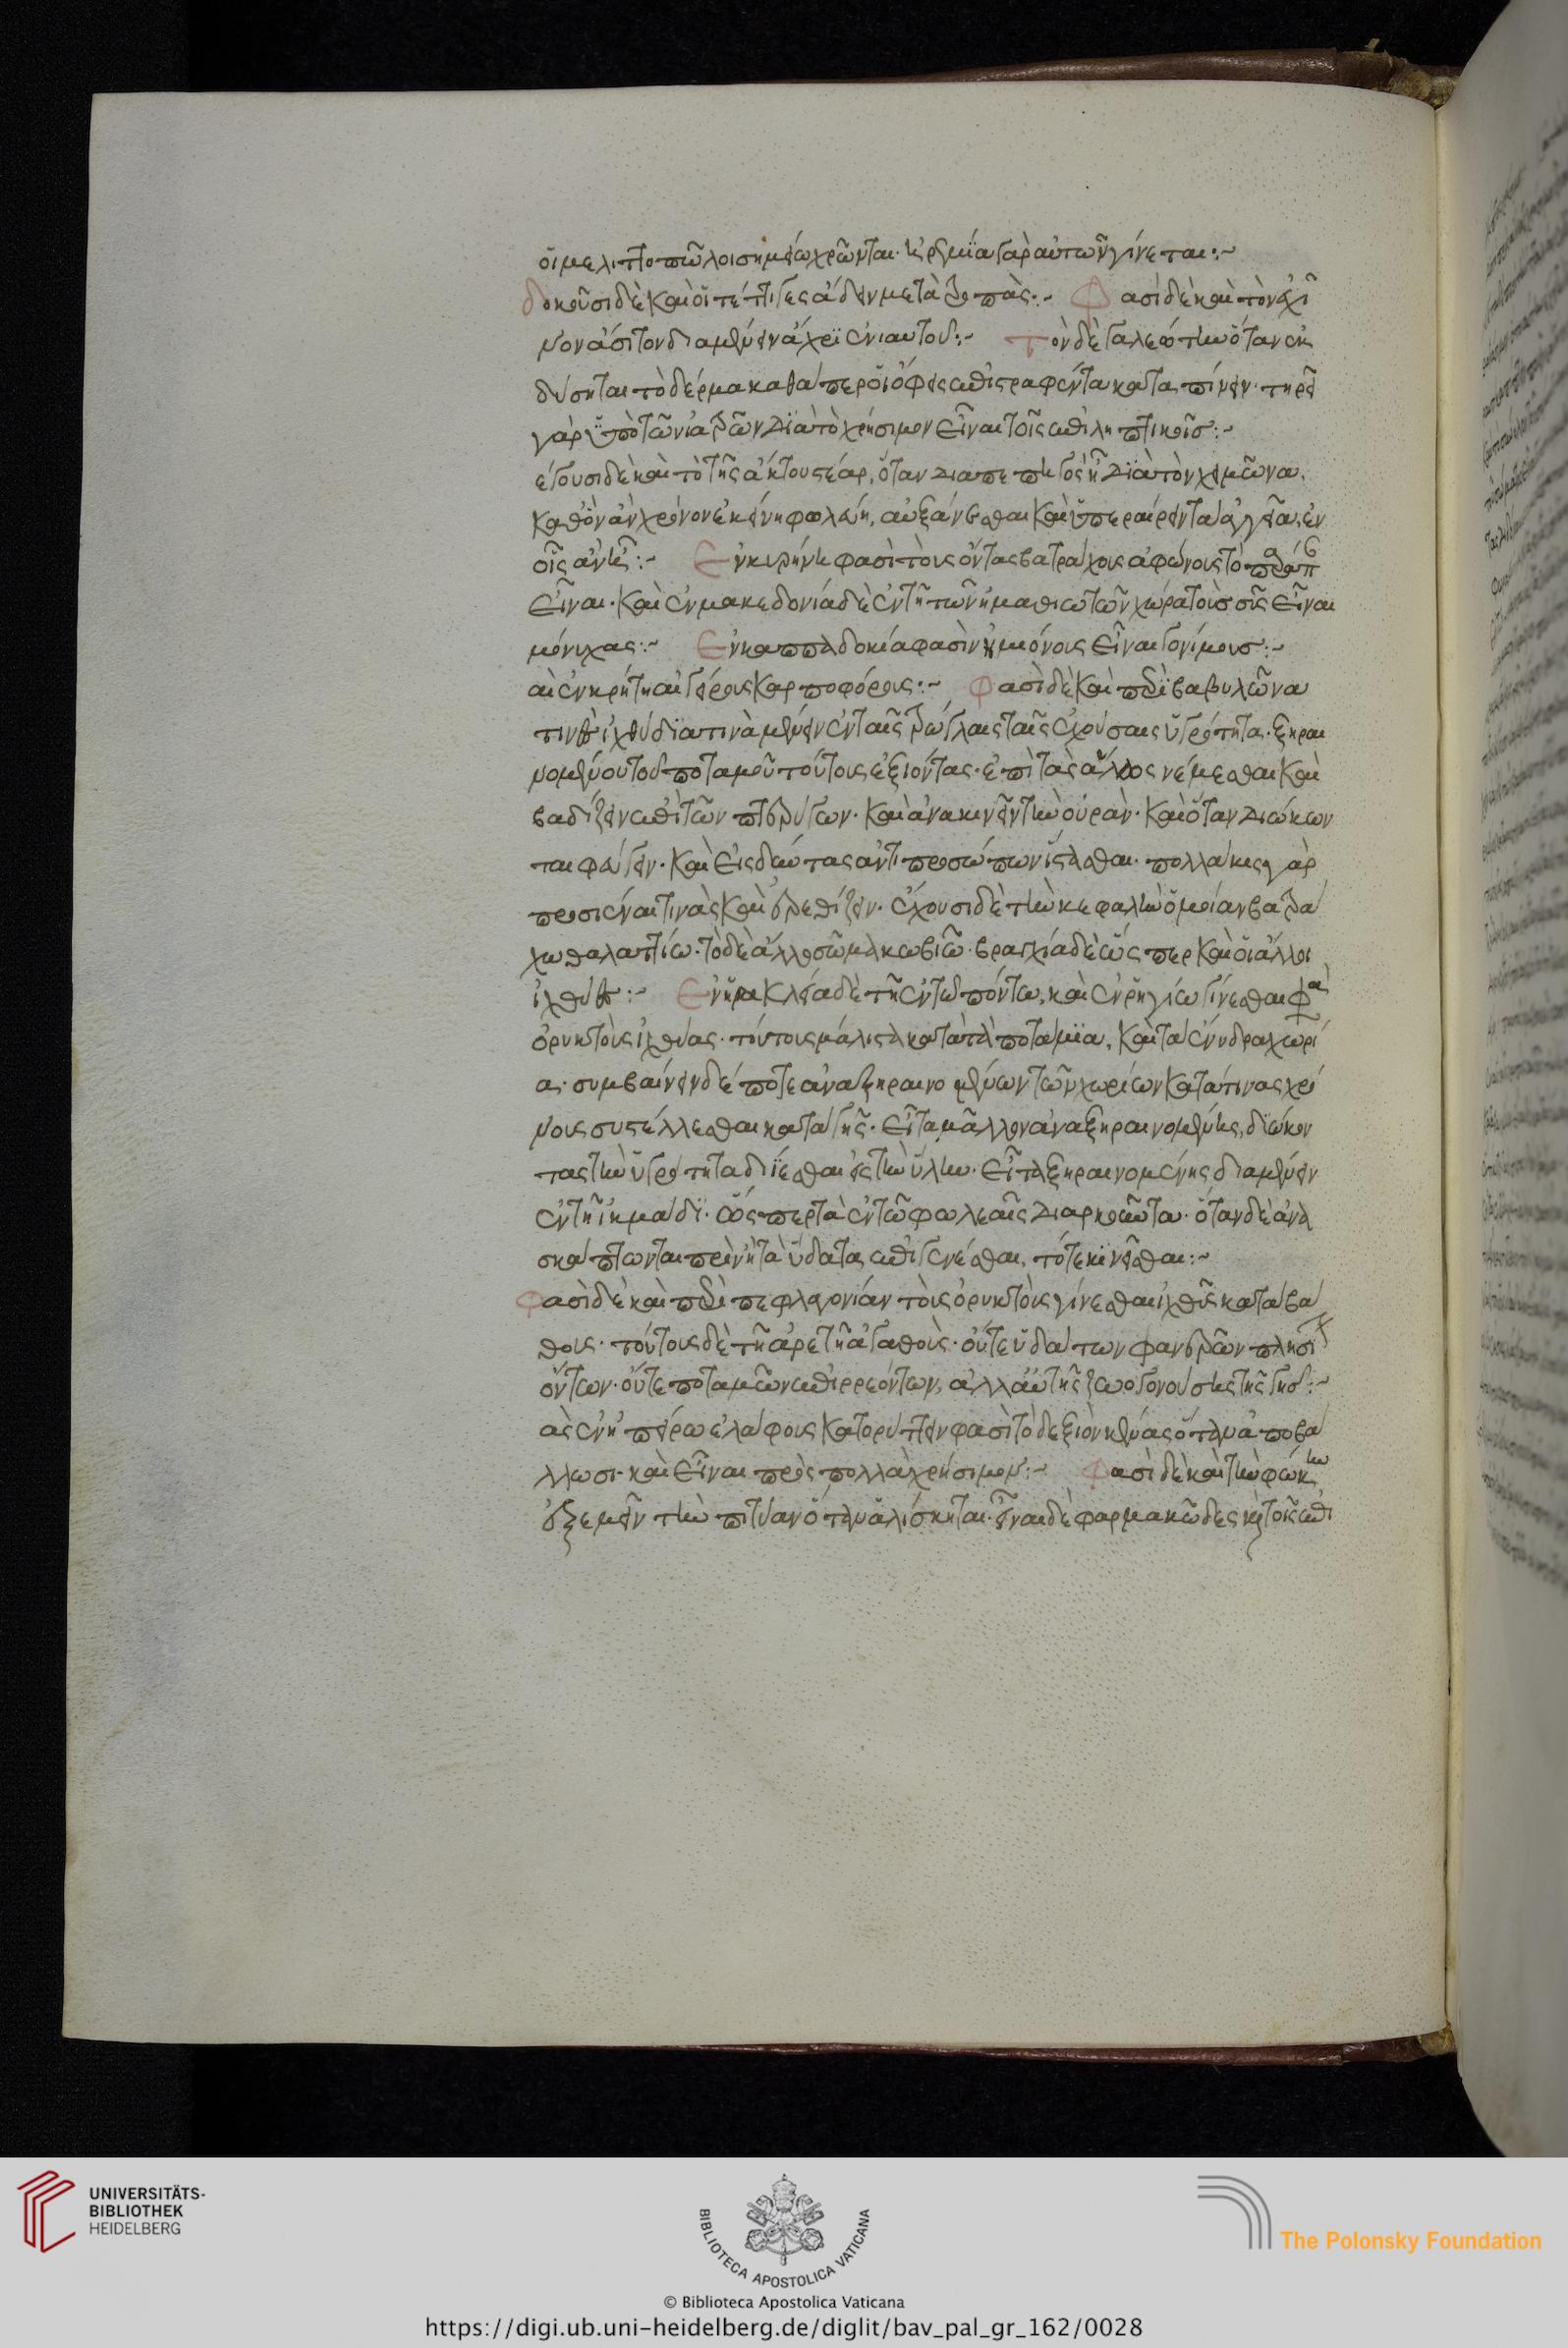 οἱ μελιττοπῶλοι σημείω χρῶνται· ἠρεμία γὰρ αὐτῶν γίνεται:~
δοκοῦσι δὲ καὶ οἱ τέττιγες ἄδειν μετὰ τροπὰς:~ Φασὶ δὲ καὶ τὸν ἐχῖ
νον ἄσιτον διαμένειν ἄχρι ἐνιαυτοῦ:~ τὸν δὲ γαλεώτην ὅταν ἐκ
δύσηται τὸ δέρμα καθάπερ οἱ ὄφεις ἐπιστραφέντα καταπίνειν· τηρεῖ
γὰρ ὑπὸ τῶν ἰατρῶν διὰ τὸ χρήσιμον εἶναι τοῖς ἐπιληπτικοῖς:~
λέγουσι δὲ καὶ τὸ τῆς ἄρκτου στέαρ, ὅταν διαπεπηγὸς ἦ διὰ τὸν χειμῶνα,
καθ' ὃν ἂν χρόνον ἐκείνη φωλεύη, αὐξάνεσθαι καὶ ὑπεραίρειν τὰ ἀγγεῖα, ἐν
οἷς ἂν ἦ:~ Ἐν κυρήνη φασὶ τοὺς ὄντας βατράχους ἀφώνους τὸ παράπ
εἶναι· καὶ ἐν μακεδονία δὲ ἐν τῆ τῶν ἠμαθιωτῶν χώρα τοὺς σῦς εἶναι
μόνυχας:~ Ἐν καππαδοκία φασὶν ἡμιόνους εἶναι γονίμους:~
αἱ ἐν κρήτη αἴγειροις καρποφόροις:~ Φασὶ δὲ καὶ περὶ βαβυλῶνα
τινὰς ἰχθύδια τινὰ μένειν ἐν ταῖς τρώγλαις ταῖς ἐχούσαις ὑγρότητα· ξηραι
νομένου τοῦ ποταμοῦ τούτους ἐξιόντας· ἐπὶ τὰς ἅλως νέμεσθαι καὶ
βαδίζειν ἐπὶ τῶν πτερύγων· καὶ ἀνακινεῖν τὴν οὐρὰν· καὶ ὅταν διώκων
ται φεύγειν· καὶ εἰσδύντας ἀντιπροσώπων ἵστασθαι· πολλάκις γὰρ
προσιέναι τινὰς καὶ ἐρεθίζειν· ἔχουσι δὲ τὴν κεφαλὴν ὁμοίαν βατρά
χω θαλαττίω· τὸ δὲ ἄλλο σῶμα κωβιῶ· βραγχία δὲ ὥσπερ καὶ οἱ ἄλλοι
ἰχθύες:~ Ἐν ἡρακλεία δὲ τῆ ἐν τῶ πόντω, καὶ ἐν ῥηγίω γίνεσθαι φα
ὀρυκτοὺς ἰχθύας· τούτους μάλιστα κατὰ τὰ ποτάμια, καὶ τὰ ἔνυδρα χωρί
α· συμβαίνειν δέ ποτε ἀναξηραινομένων τῶν χωρίων κατά τινας χρό
νους συστέλλεσθαι κατὰ γῆς· εἶτα μᾶλλον ἀναξηραινομένης, διώκον
τας τὴν ὑγρότητα διΐεσθαι εἰς τὴν ὕλην· εἶτα ξηραινομένης διαμένειν
ἐν τῆ ἰκμάδι· ὥσπερ τὰ ἐν τῶ φωλεαῖς διαρκοῦντα· ὅταν δὲ ἀνα
σκάπτωνται πρὶν ἢ τὰ ὕδατα ἐπιγενέσθαι, τότε κινεῖσθαι:~
Φασὶ δὲ καὶ περὶ πεφλαγονίαν τοὺς ὀρυκτοὺς γίνεσθαι ἰχθῦς κατὰ βά
θους· τούτους δὲ τῆ ἀρετῆ ἀγαθοὺς· οὔτε ὑδάτων φανερῶν πλησι
όντων· οὔτε ποταμῶν ἐπιρρεόντων, ἀλλ' αὐτῆς ζωογονούσης τῆς γῆς:~
ὰς ἐν ἠπείρω ἐλάφους κατορύττειν φασὶ τὸ δεξιὸν κέρας ὅταν ἀποβά
λλωσι· καὶ εἶναι πρὸς πολλὰ χρήσιμον:~ Φασὶ δὲ καὶ τὴν φώκην
ἐξεμεῖν τὴν πιτύαν ὅταν ἁλίσκηται· εἶναι δὲ φαρμακῶδες καὶ τοῖς ἐπι
UNIVERSITÄTS-
BIBLIOTHEK
HEIDELBERG
BIBLIOTECA APOSTOLICA VATICANA
The Polonsky Foundation
© Biblioteca Apostolica Vaticana
https://digi.ub.uni-heidelberg.de/diglit/bav_pal_gr_162/0028